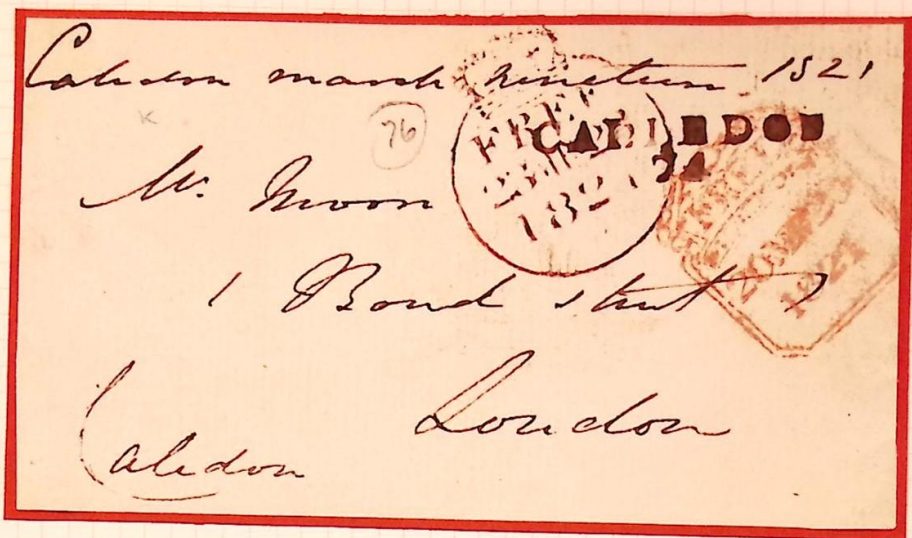 Caledon march nineteen 1821
76
FREE
1821
CALLEDON
74
Mr. Moon
1 Bond street
London
Caledon
1821